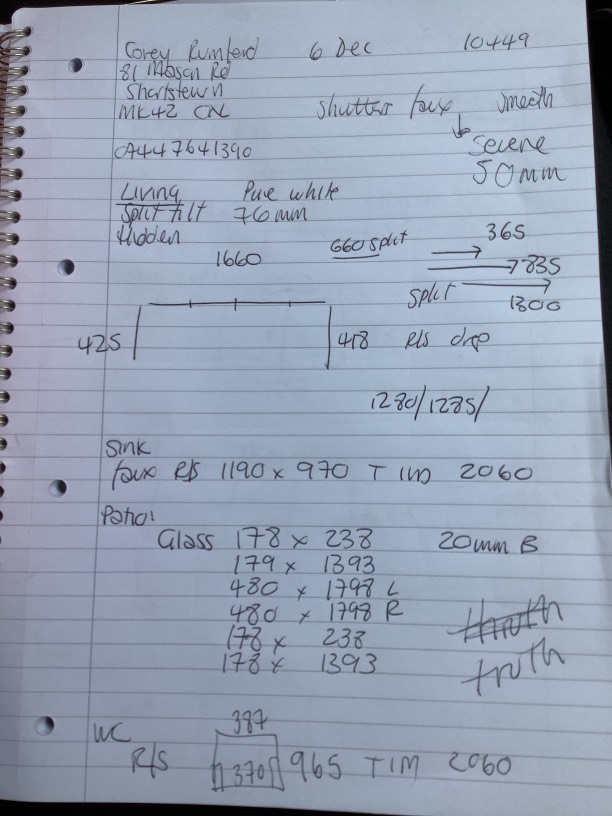 Corey Rumford 6 Dec 10449
81 Mason Rd
Sharkstewn
MK42 CNL shutters faux smooth
CA447641390 Severe
50mm
Living Pure white
Split tilt 76mm
Hidden
1660 660 split 365
835
split 1300
425 418 R/s drop
1280/1285/
Sink
faux R/s 1190 x 970 T 2060
Patio:
Glass 178 x 238 20mm B
179 x 1393
480 x 1798 L
480 x 1798 R
178 x 238
178 x 1393 truth
387
WC
R/S 370 965 T 1M 2060